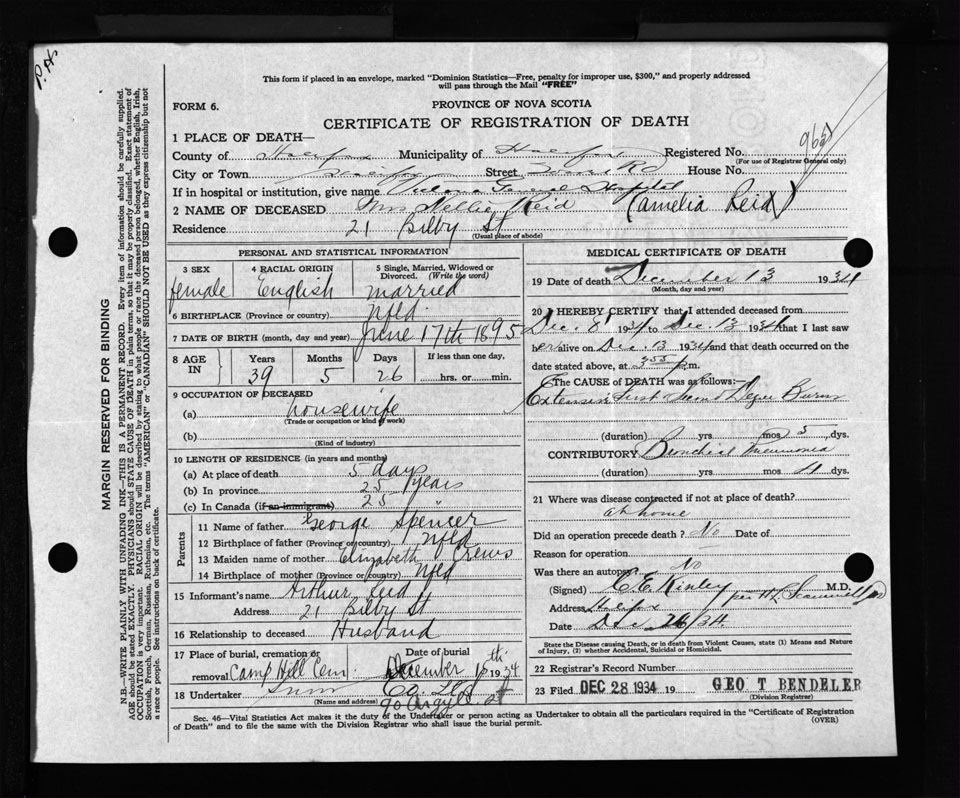 P.H.
This form if placed in an envelope, marked "Dominion Statistics—Free, penalty for improper use, $300," and properly addressed
will pass through the Mail "FREE"
FORM 6.
PROVINCE OF NOVA SCOTIA
CERTIFICATE OF REGISTRATION OF DEATH
1 PLACE OF DEATH—
County of Halifax Municipality of Halifax Registered No.
(For use of Registrar General only)
City or Town Halifax Street House No.
If in hospital or institution, give name Victoria General Hospital
2 NAME OF DECEASED Mrs Nellie Reid (Amelia Reid)
Residence 21 Bilby St
(Usual place of abode)
PERSONAL AND STATISTICAL INFORMATION
3 SEX female
4 RACIAL ORIGIN English
5 Single, Married, Widowed or Divorced. (Write the word) married
6 BIRTHPLACE (Province or country) Nfld.
7 DATE OF BIRTH (month, day and year) June 17th 1895
8 AGE IN Years 39 Months 5 Days 26 If less than one day, hrs. or min.
9 OCCUPATION OF DECEASED
(a) housewife
(Trade or occupation or kind of work)
(b)
(Kind of industry)
10 LENGTH OF RESIDENCE (in years and months)
(a) At place of death 5 days
(b) In province 25 years
(c) In Canada (if an immigrant) 25 "
Parents
11 Name of father George Spencer
12 Birthplace of father (Province or country) Nfld
13 Maiden name of mother Elizabeth Crews
14 Birthplace of mother (Province or country) Nfld
15 Informant's name Arthur Reid
Address 21 Bilby St
16 Relationship to deceased Husband
17 Place of burial, cremation or removal Camp Hill Cem Date of burial December 15th 1934
18 Undertaker Snow Co. Ltd
(Name and address) 90 Argyle St
MEDICAL CERTIFICATE OF DEATH
19 Date of death December 13 1934
(Month, day and year)
20 I HEREBY CERTIFY that I attended deceased from
Dec. 8 1934 to Dec. 13 1934 that I last saw
her alive on Dec. 13 1934 and that death occurred on the
date stated above, at 3 55 p.m.
The CAUSE OF DEATH was as follows:—
Extensive First Second Degree Burns
(duration) yrs mos 5 dys.
CONTRIBUTORY Bronchial Pneumonia
(duration) yrs mos 4 dys.
21 Where was disease contracted if not at place of death?
at home
Did an operation precede death? No Date of
Reason for operation
Was there an autopsy No
(Signed) C. E. Kinley M.D.
Address Halifax
Date Dec 26/34
State the Disease causing Death, or in death from Violent Causes, state (1) Means and Nature
of Injury, (2) whether Accidental, Suicidal or Homicidal.
22 Registrar's Record Number
23 Filed DEC 28 1934 19 GEO T BENDELER
(Division Registrar)
Sec. 46—Vital Statistics Act makes it the duty of the Undertaker or person acting as Undertaker to obtain all the particulars required in the "Certificate of Registration
of Death" and to file the same with the Division Registrar who shall issue the burial permit. (OVER)
MARGIN RESERVED FOR BINDING
N.B.—WRITE PLAINLY WITH UNFADING INK—THIS IS A PERMANENT RECORD. Every item of information should be carefully supplied.
AGE should be stated EXACTLY. PHYSICIANS should STATE CAUSE OF DEATH in plain terms, so that it may be properly classified. Exact statement of
OCCUPATION is very important. RACIAL ORIGIN will be described by stating to what people or race the deceased person belonged, whether English, Irish,
Scottish, French, German, Russian, Ruthenian, etc. The terms "AMERICAN" or "CANADIAN" SHOULD NOT BE USED as they express citizenship but not
a race or people. See instructions on back of certificate.